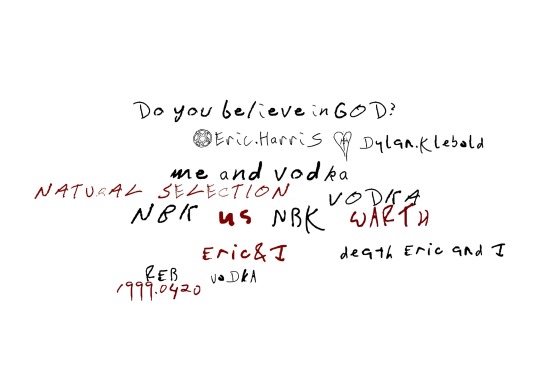 Do you believe in GOD?
Eric.Harris Dylan.Klebold
me and vodka
NATURAL SELECTION VODKA
NBK us NBK WARTH
Eric&I death Eric and I
REB VODKA
1999.0420